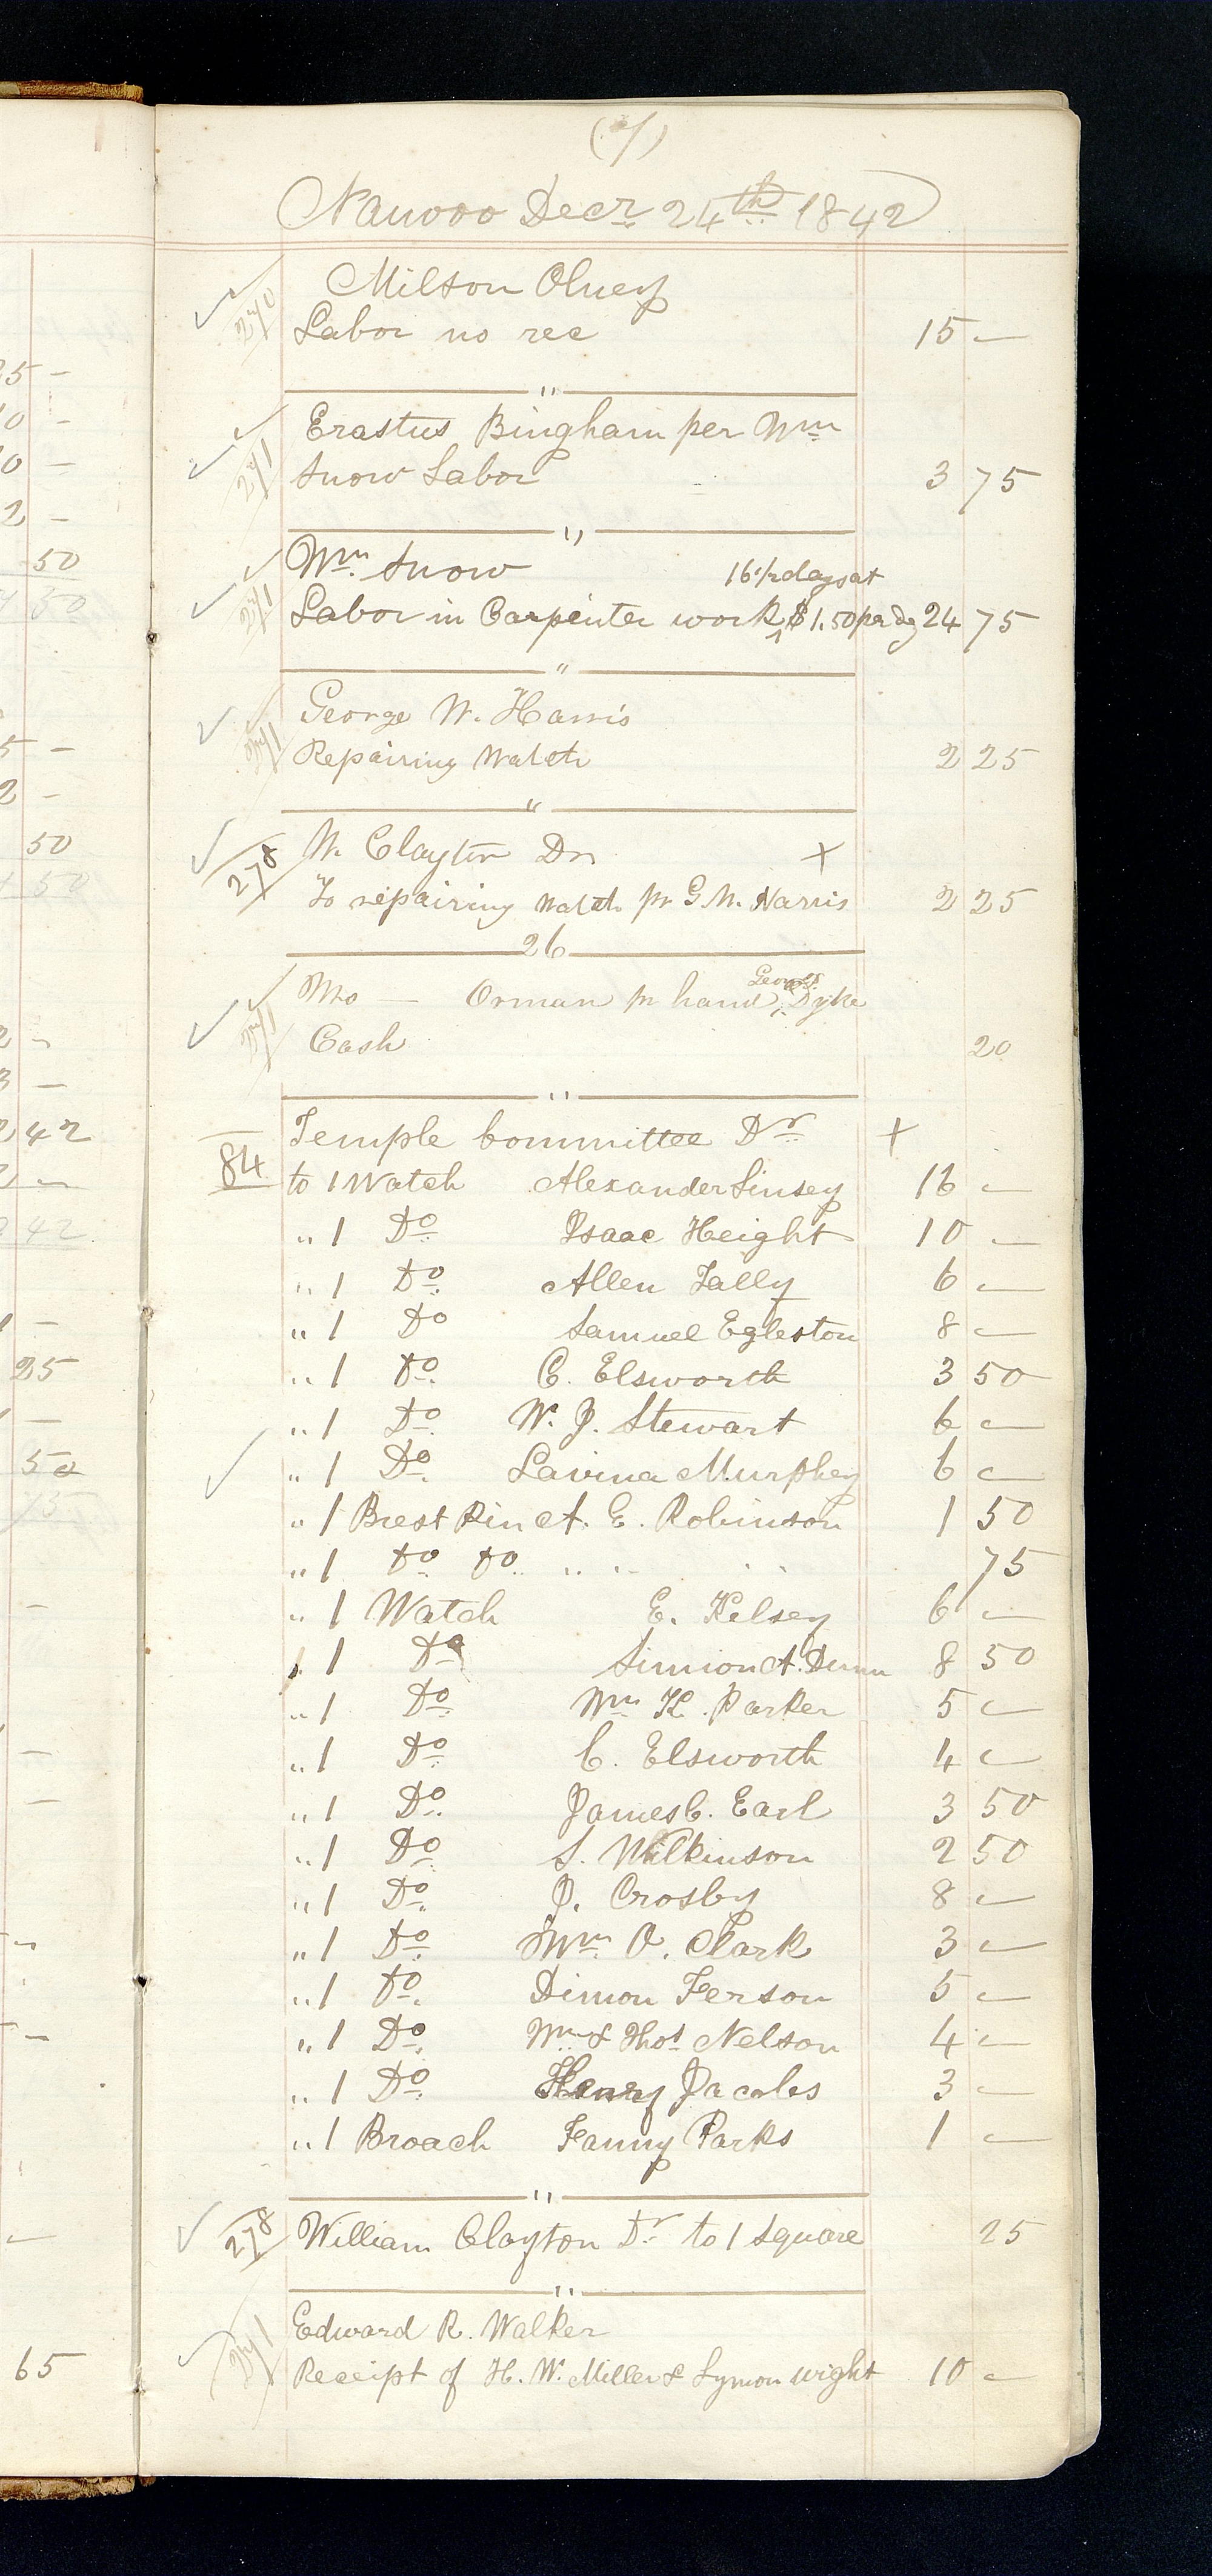 (7)
Nauvoo Decr 24th 1842
Milton Olney
270
Labor no rec 15 –
"
Erastus Bingham per Wm
271
Snow Labor 3 75
"
Wm Snow 16 1/2 days at
271
Labor in Carpenter work $1.50 per Dy 24 75
"
George W. Harris
271
Repairing Watch 2 25
"
W. Clayton Dr X
278
To repairing watch pr G. W. Harris 2 25
26
Mo — Orman pr hand George Dyke
271
Cash 20
"
Temple Committee Dr X
84
to 1 Watch Alexander Linsey 16 –
" 1 Do Isaac Height 10 –
" 1 Do Allen Tally 6 –
" 1 Do Samuel Egleston 8 –
" 1 Do C. Elsworth 3 50
" 1 Do W. J. Stewart 6 –
" 1 Do Lavina Murphey 6 –
" 1 Brest Pin A. E. Robinson 1 50
" 1 Do Do " " " " 75
" 1 Watch E. Kelsey 6 –
" 1 Do Simion A. Dunn 8 50
" 1 Do Wm K. Parker 5 –
" 1 Do C. Elsworth 4 –
" 1 Do James C. Earl 3 50
" 1 Do S. Wilkinson 2 50
" 1 Do J. Crosby 8 –
" 1 Do Wm O. Clark 3 –
" 1 Do Dimon Ferson 5 –
" 1 Do Wm & Thos Nelson 4 –
" 1 Do Henry Jacobs 3 –
" 1 Broach Fanny Parks 1 –
"
278
William Clayton Dr to 1 Square 25
"
Edward R. Walker
271
Receipt of H. W. Miller & Lymon wight 10 –